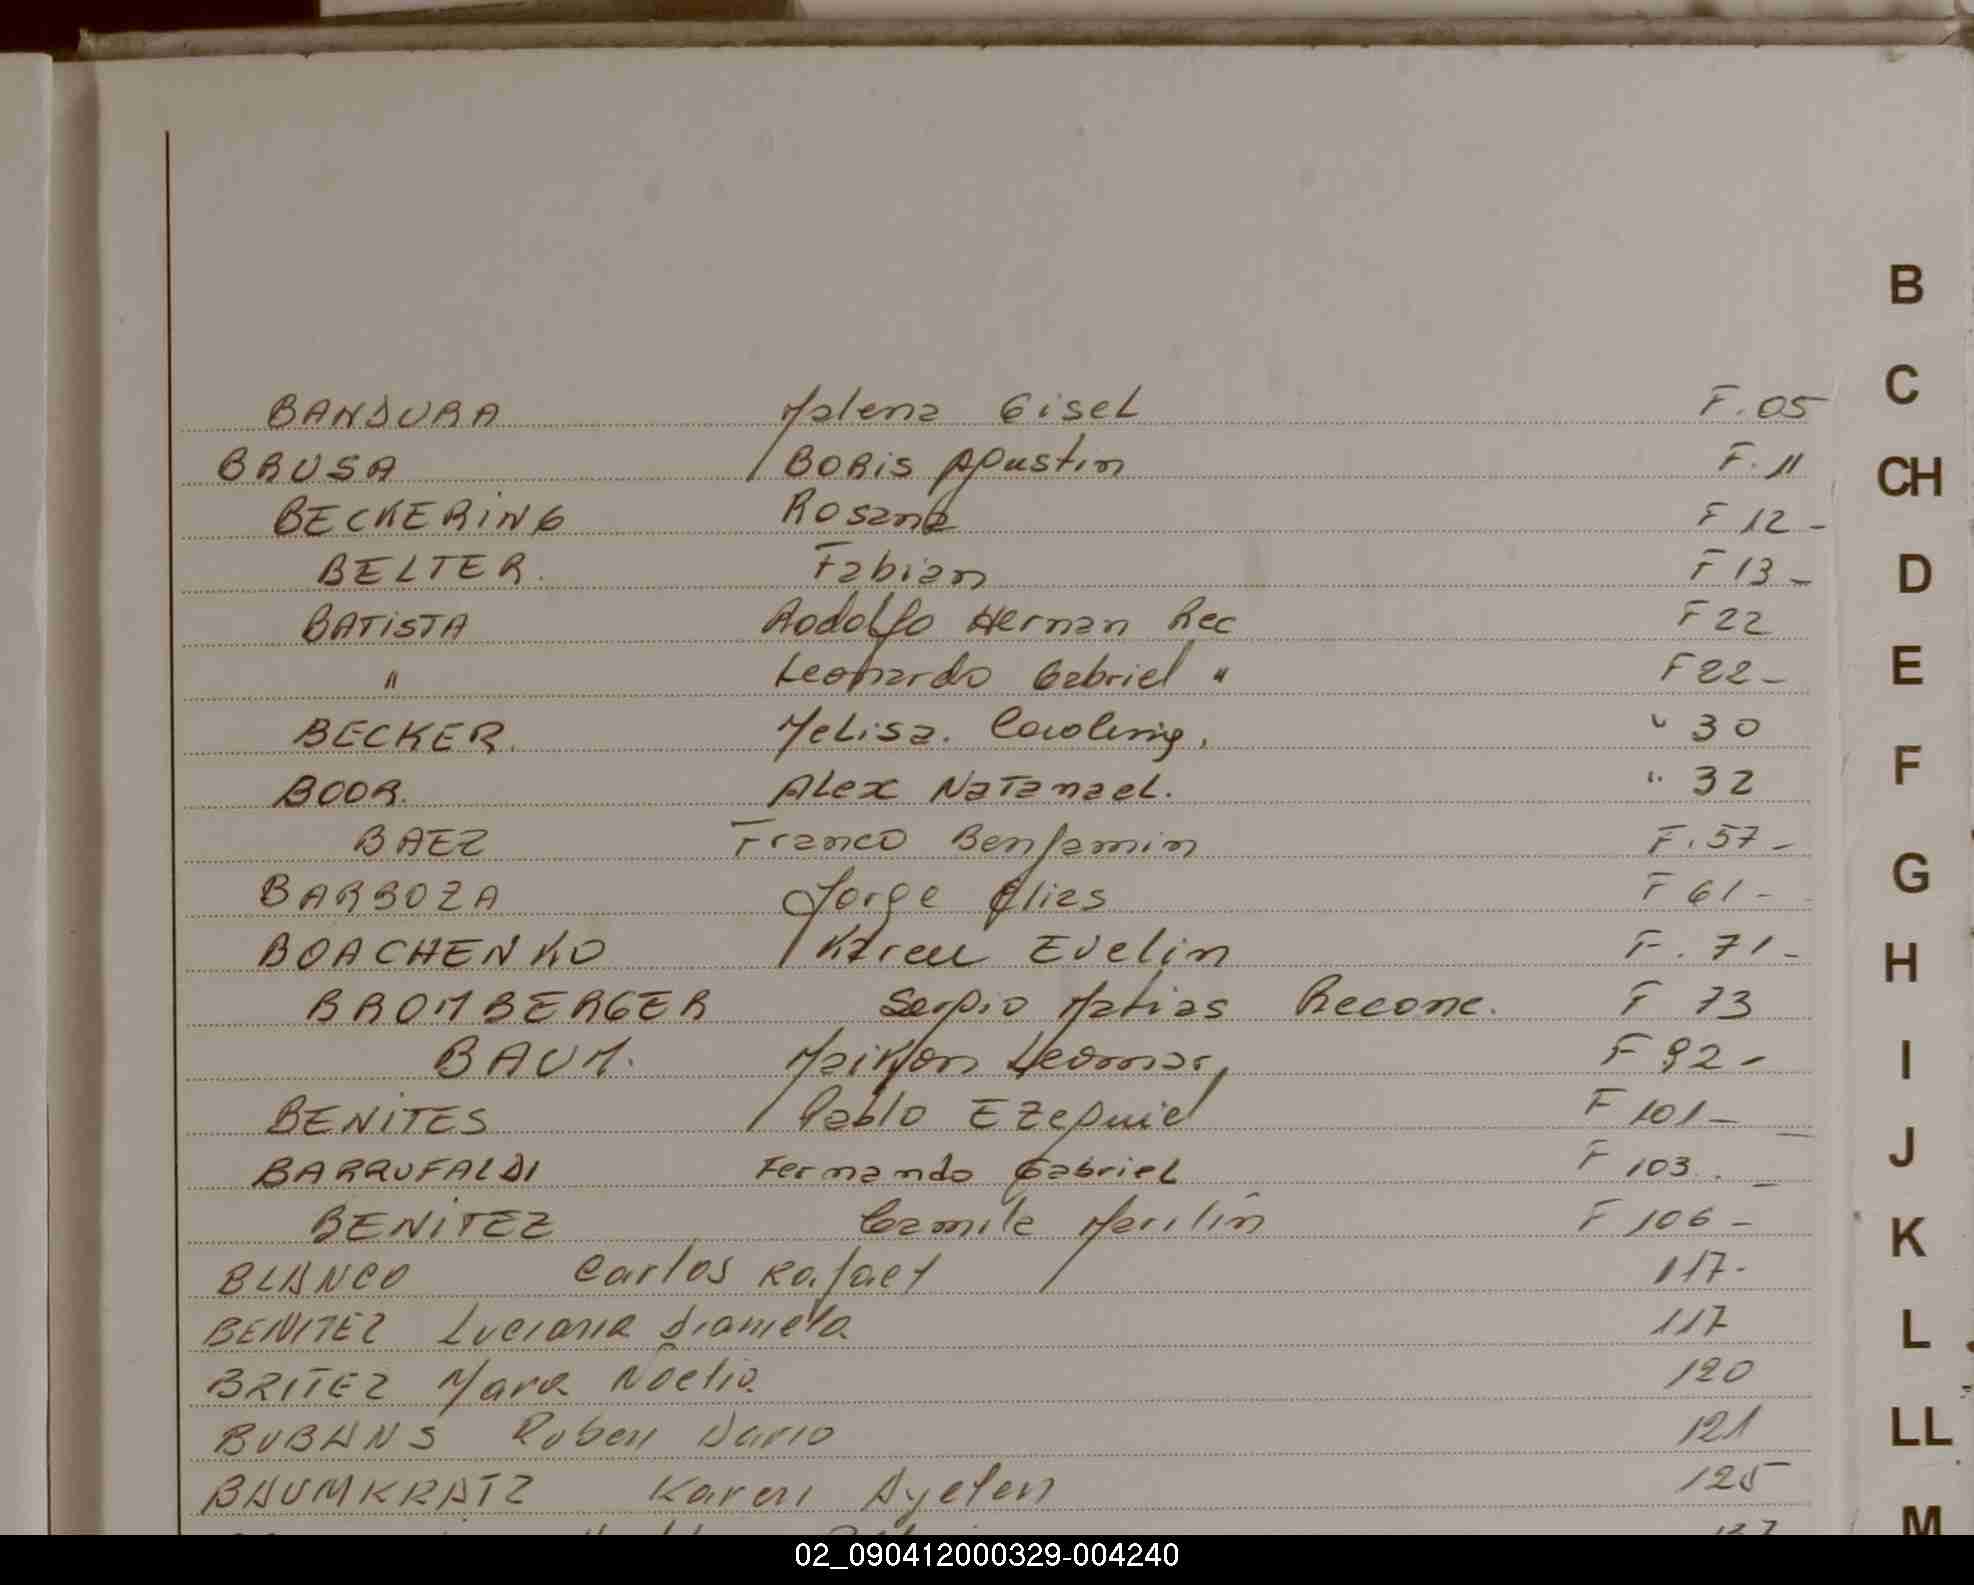 BANDURA Malena Gisel F. 05
BRUSA Boris Agustin F. 11
BECKERING Rosana F 12 -
BELTER. Fabian F 13 -
BATISTA Rodolfo Hernan Rec F 22
" Leonardo Gabriel " F 22 -
BECKER. Melisa. Carolina, " 30
BOOR. Alex Natanael. " 32
BAEZ Franco Benjamin F. 57 -
BARBOZA Jorge Elias F 61 -
BOACHENKO Karen Evelin F. 71 -
BROMBERGER Sergio Matias Recone. F 73
BAUM. Maikon Leomar, F 92 -
BENITES Pablo Ezequiel F 101 -
BARRUFALDI Fernando Gabriel F 103. -
BENITEZ Camila Marilin F 106 -
BLANCO Carlos Rafael 117 -
BENITEZ Luciana Diamela 117
BRITEZ Mara Noelia 120
BUBANS Ruben Dario 121
BAUMKRATZ Karen Ayelen 125
B
C
CH
D
E
F
G
H
I
J
K
L
LL
M
02_090412000329-004240